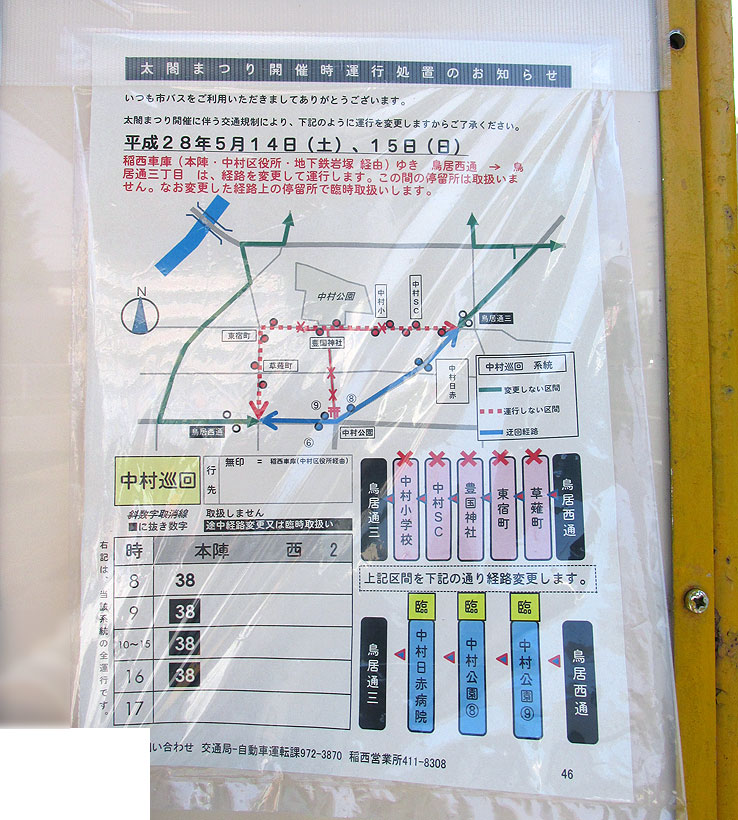 太閤まつり開催時運行処置のお知らせ
いつも市バスをご利用いただきましてありがとうございます。
太閤まつり開催に伴う交通規制により、下記のように運行を変更しますからご了承ください。
平成28年5月14日（土）、15日（日）
稲西車庫（本陣・中村区役所・地下鉄岩塚 経由）ゆき 鳥居西通 → 鳥
居通三丁目 は、経路を変更して運行します。この間の停留所は取扱いま
せん。なお変更した経路上の停留所で臨時取扱いします。
N
中村公園
中村小
中村SC
鳥居通三
東宿町
豊国神社
草薙町
中村日赤
⑨
⑧
鳥居西通
⑥
中村公園
中村巡回 系統
変更しない区間
運行しない区間
迂回経路
中村巡回
行先
無印 = 稲西車庫(中村区役所経由)
斜数字取消線 取扱しません
■に抜き数字 途中経路変更又は臨時取扱い
右記は、当該系統の全運行です。
時 本陣 西 2
8 38
9 38
10～15 38
16 38
17
鳥居通三
中村小学校
中村SC
豊国神社
東宿町
草薙町
鳥居西通
上記区間を下記の通り経路変更します。
臨 臨 臨
鳥居通三
中村日赤病院
中村公園⑧
中村公園⑨
鳥居西通
い合わせ 交通局-自動車運転課972-3870 稲西営業所411-8308
46